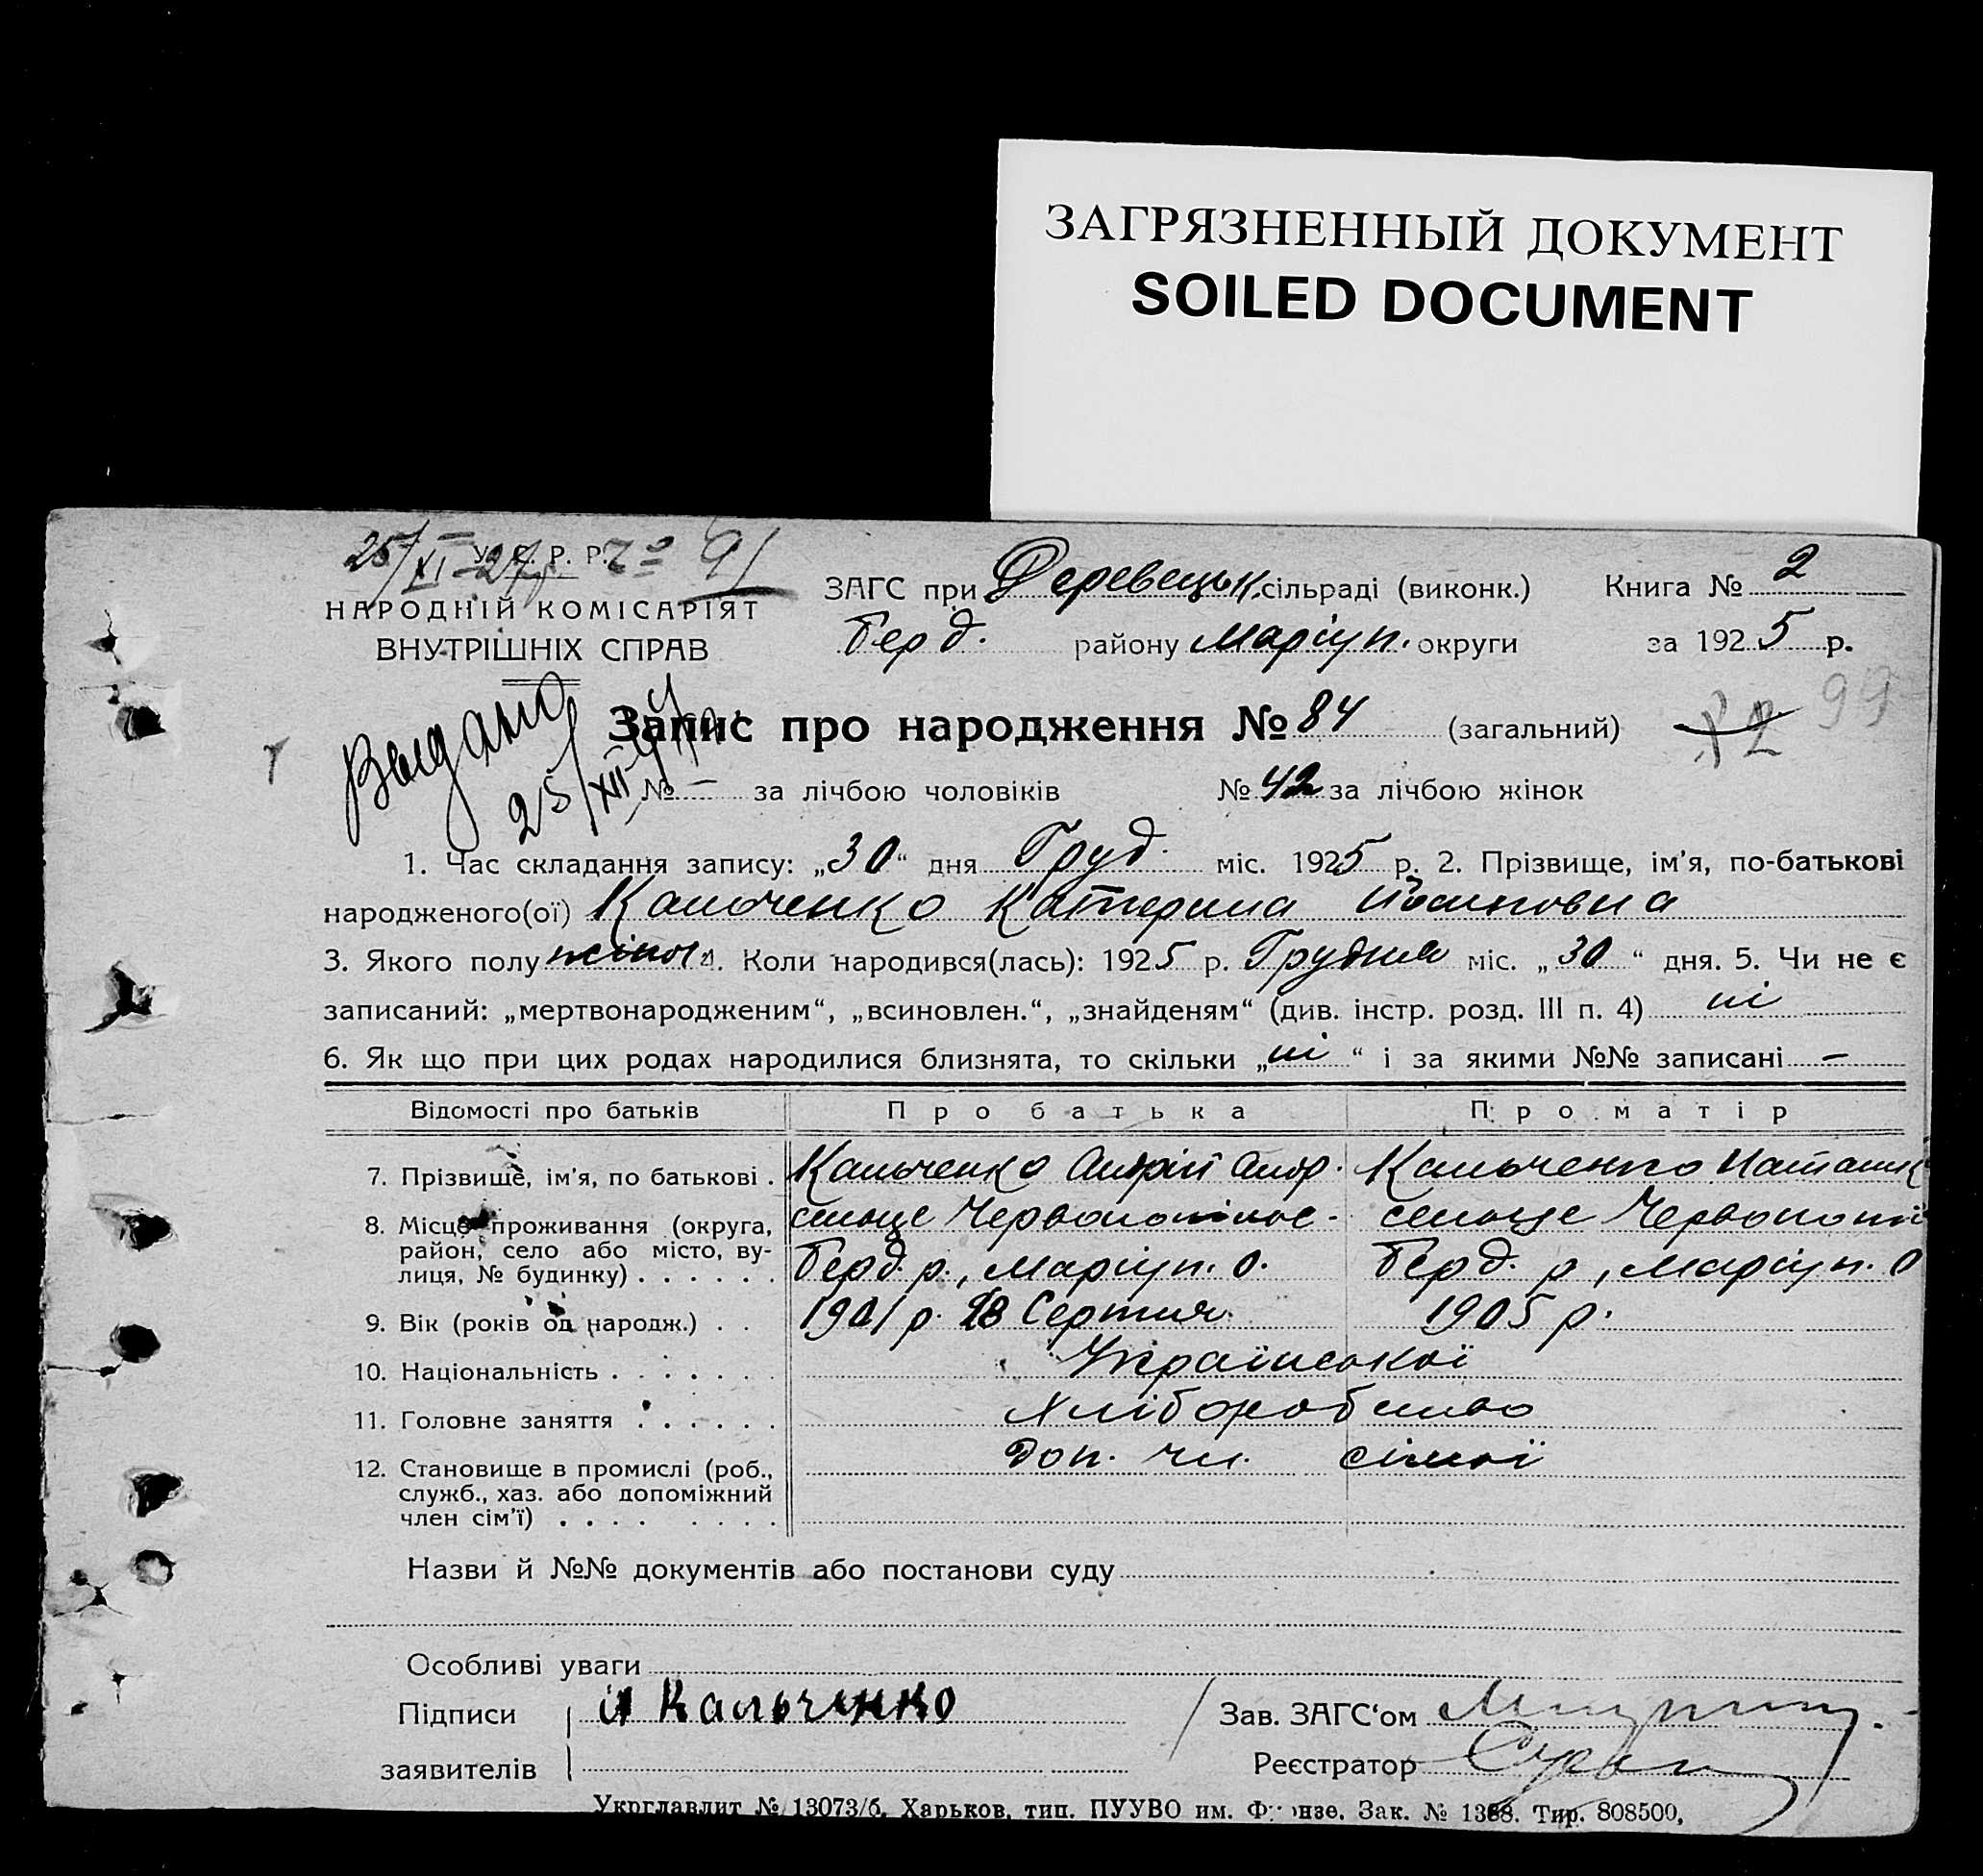 ЗАГРЯЗНЕННЫЙ ДОКУМЕНТ
SOILED DOCUMENT
25/XI-27р. 91
У. С. Р. Р.
НАРОДНІЙ КОМІСАРІЯТ
ВНУТРІШНІХ СПРАВ
ЗАГС при Деревецьк. сільраді (виконк.) Книга № 2
Берд. району Маріуп. округи за 1925 р.
Выдано
25/XII
Запис про народження № 84 (загальний) 99
№ – за лічбою чоловіків № 42 за лічбою жінок
1. Час складання запису: „30“ дня Груд. міс. 1925 р. 2. Прізвище, ім'я, по-батькові
народженого(ої) Кальченко Катерина
3. Якого полу жіноч. 4. Коли народився(лась): 1925 р. Грудня міс. „30“ дня. 5. Чи не є
записаний: „мертвонародженим“, „всиновлен.“, „знайденям“ (див. інстр. розд. III п. 4) ні
6. Як що при цих родах народилися близнята, то скільки „ні“ і за якими №№ записані –
Відомості про батьків Про батька Про матір
7. Прізвище, ім'я, по батькові . Кальченко Андрій Андр. Кальченко Наталк
8. Місце проживання (округа, сельце сельце
район, село або місто, ву- Берд. р., Маріуп. О. Берд. р, Маріуп. О
лиця, № будинку) . . . . . .
9. Вік (років од народж.) . . 1901 р. 28 Серпня 1905 р.
10. Національність . . . . . . . Української
11. Головне заняття . . . . . . Хліборобство
12. Становище в промислі (роб., Доп. чл. сімьї
служб., хаз. або допоміжний
член сім'ї) . . . . . . . .
Назви й №№ документів або постанови суду
Особливі уваги
Підписи Кальченко Зав. ЗАГС'ом
заявителів Реєстратор
Укрглавлит № 13073/б. Харьков, тип. ПУУВО им. Фрунзе. Зак. № 1388. Тир. 808500,